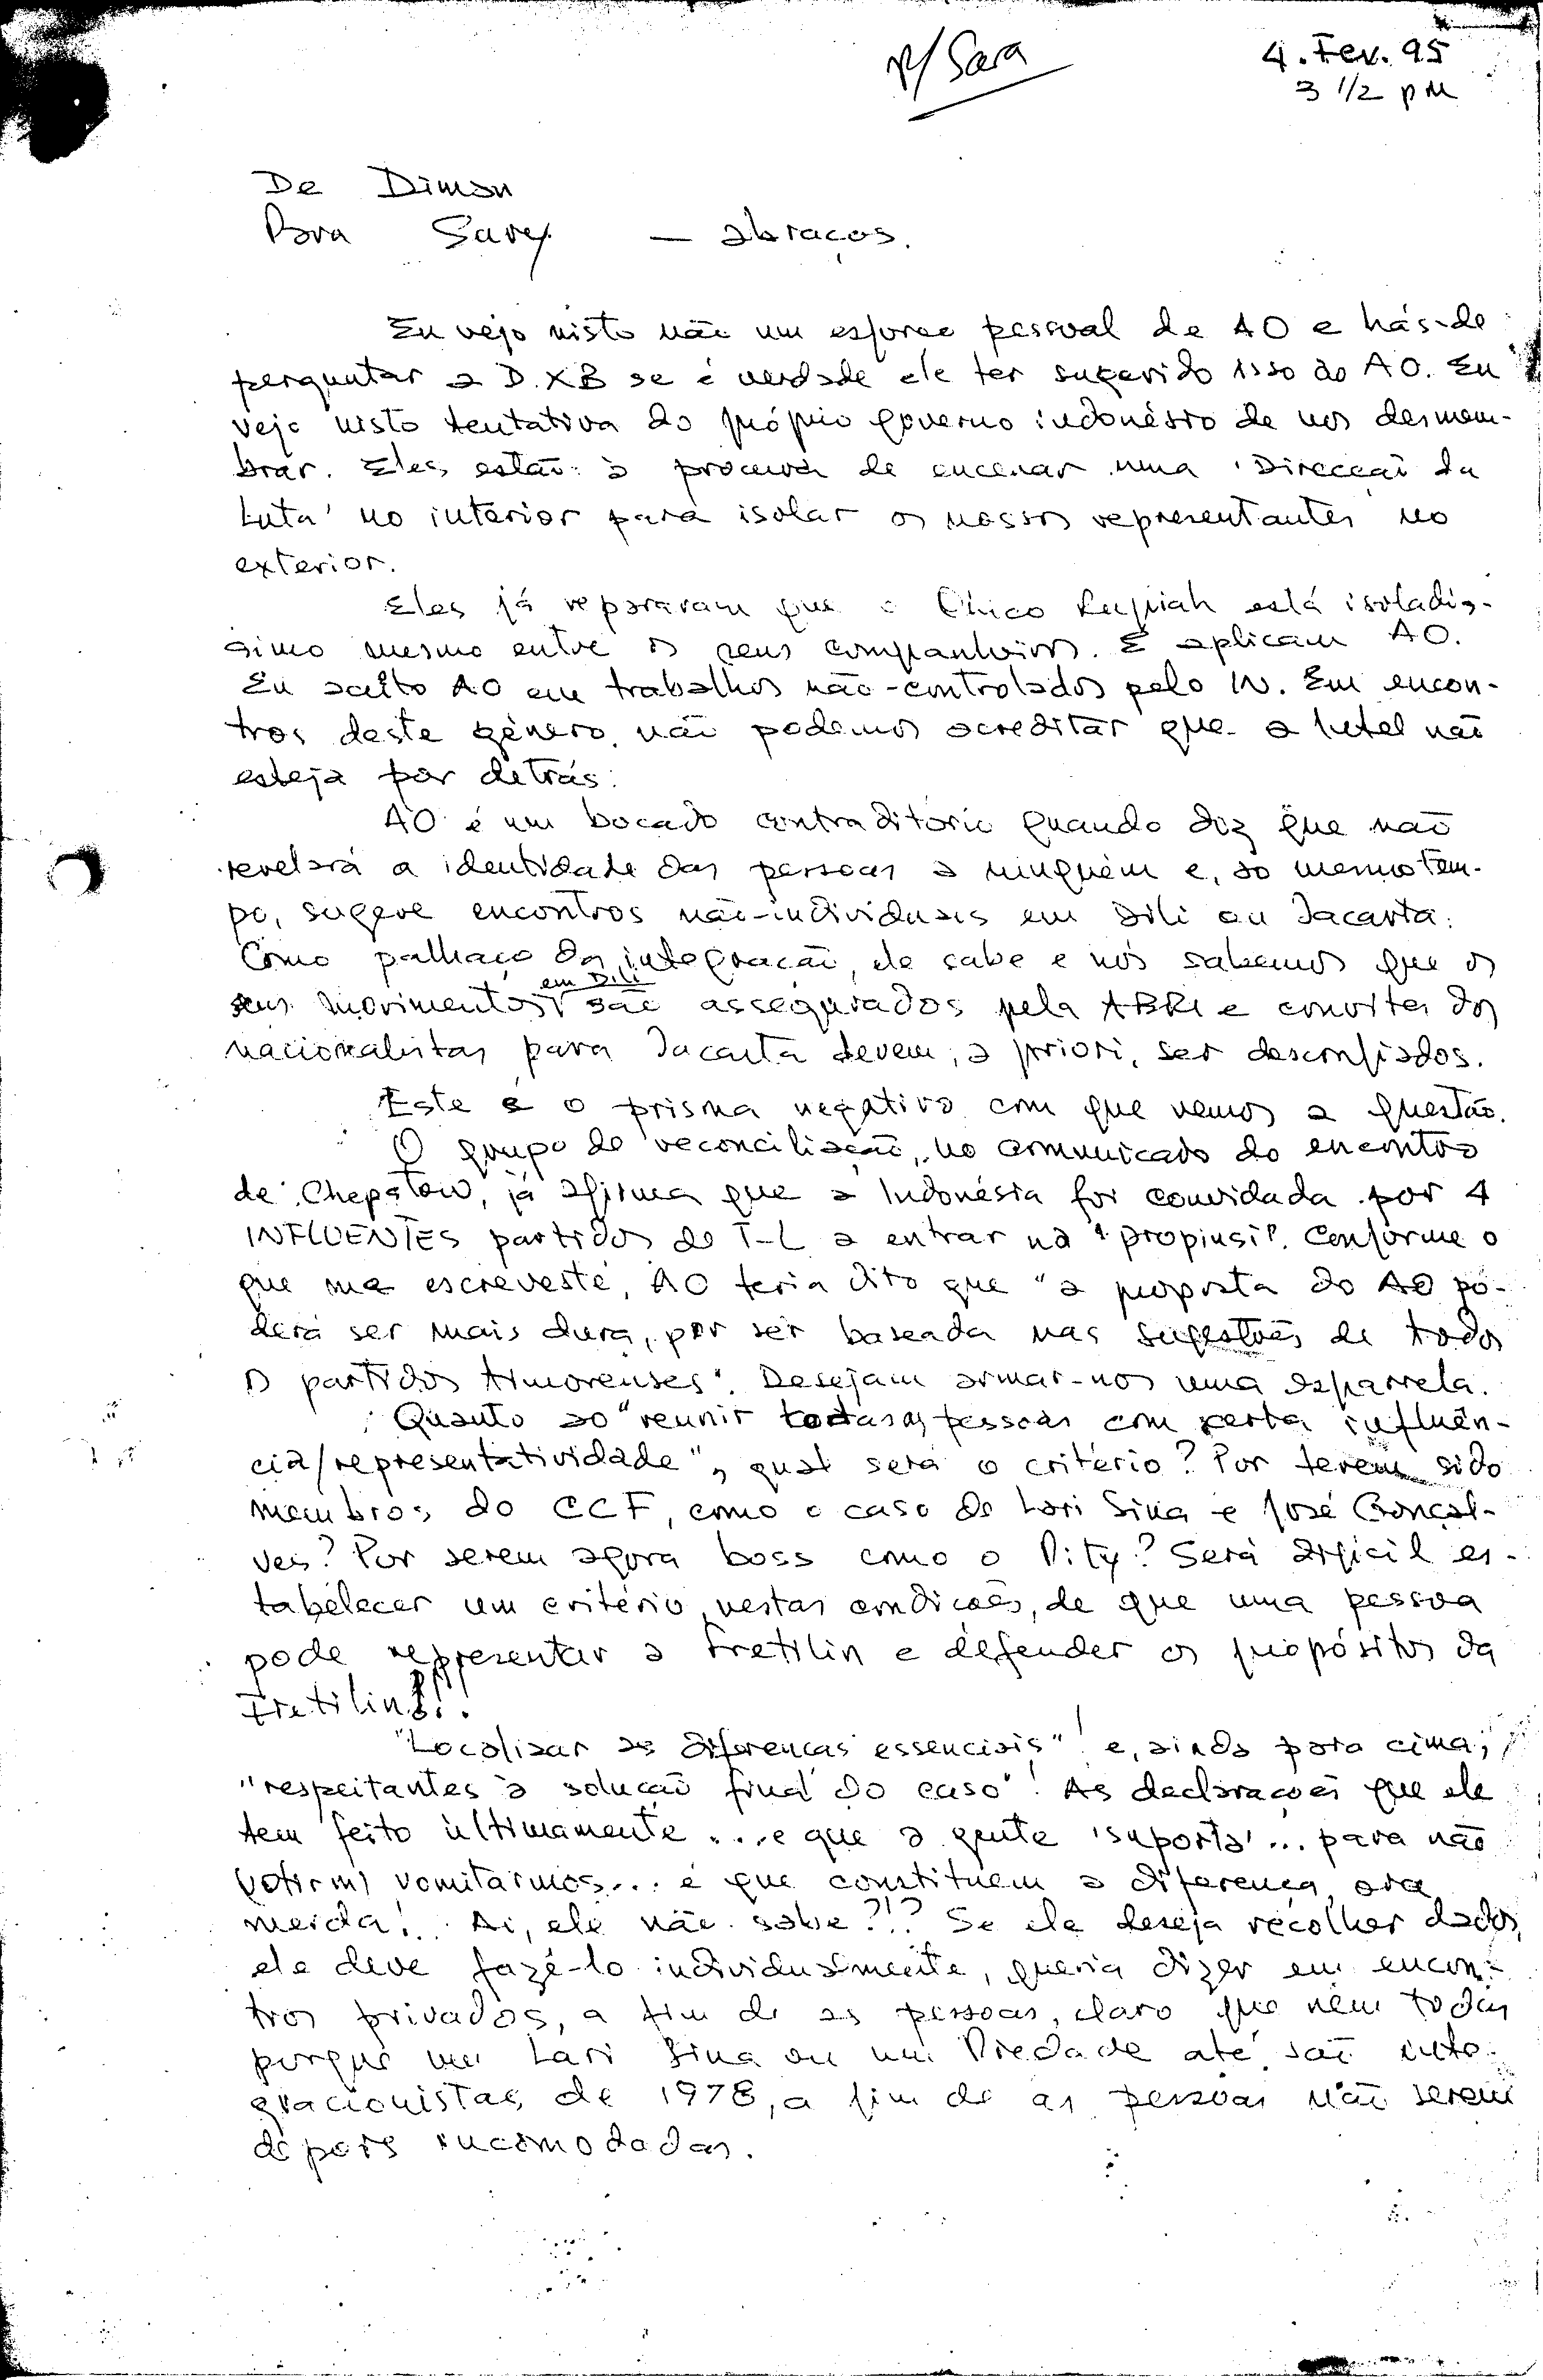 p/ Sara
4. Fev. 95
3 1/2 pM
De Dimon
Para Sarey — abraços.
Eu vejo nisto não um esforço pessoal de AO e hás-de
perguntar a D.XB se é verdade ele ter sugerido isso ao AO. Eu
vejo nisto tentativa do próprio governo indonésio de nos desmem-
brar. Eles estão à procura de encenar uma 'Direcção da
Luta' no interior para isolar os nossos representantes no
exterior.
Eles já repararam que o Chico Rupiah está isoladís-
simo mesmo entre os seus companheiros. E aplicam AO.
Eu aceito AO em trabalhos não-controlados pelo IN. Em encon-
tros deste género, não podemos acreditar que a Intel não
esteja por detrás.
AO é um bocado contraditório quando diz que não
revelará a identidade das pessoas a ninguém e, ao mesmo tem-
po, sugere encontros não-individuais em Dili ou Jacarta.
Como palhaço da integração, ele sabe e nós sabemos que os
em Dili
seus movimentos são assegurados pela ABRI e convites dos
nacionalistas para Jacarta devem, a priori, ser desconfiados.
Este é o prisma negativo com que vemos a questão.
O grupo de reconciliação, no comunicado do encontro
de Chepstow, já afirma que a Indonésia foi convidada por 4
INFLUENTES partidos de T-L a entrar na "propinsi". Conforme o
que me escreveste, AO teria dito que "a proposta do AO po-
derá ser mais dura, por ser baseada nas sugestões de todos
os partidos timorenses". Desejam armar-nos uma esparrela.
Quanto ao "reunir todas as pessoas com certa influên-
cia/representatividade", qual será o critério? Por terem sido
membros do CCF, como o caso do Lari Sina e José Gonçal-
ves? Por serem agora boss como o Pity? Será difícil es-
tabelecer um critério, nestas condições, de que uma pessoa
pode representar a Fretilin e defender os propósitos da
Fretilin!!
"Localizar as diferenças essenciais"! e, ainda para cima,
"respeitantes à solução final do caso"! As declarações que ele
tem feito ùltimamente... e que a gente 'suporta'... para não
vomitarmos... é que constituem a diferença, ora
merda! Ai, ele não sabe?!? Se ele deseja recolher dados,
ele deve fazê-lo individualmente, queria dizer em encon-
tros privados, a fim de as pessoas, claro que nem todas
porque um Lari Sina ou um Piedade até são inte-
gracionistas de 1978, a fim de as pessoas não serem
depois incomodadas.